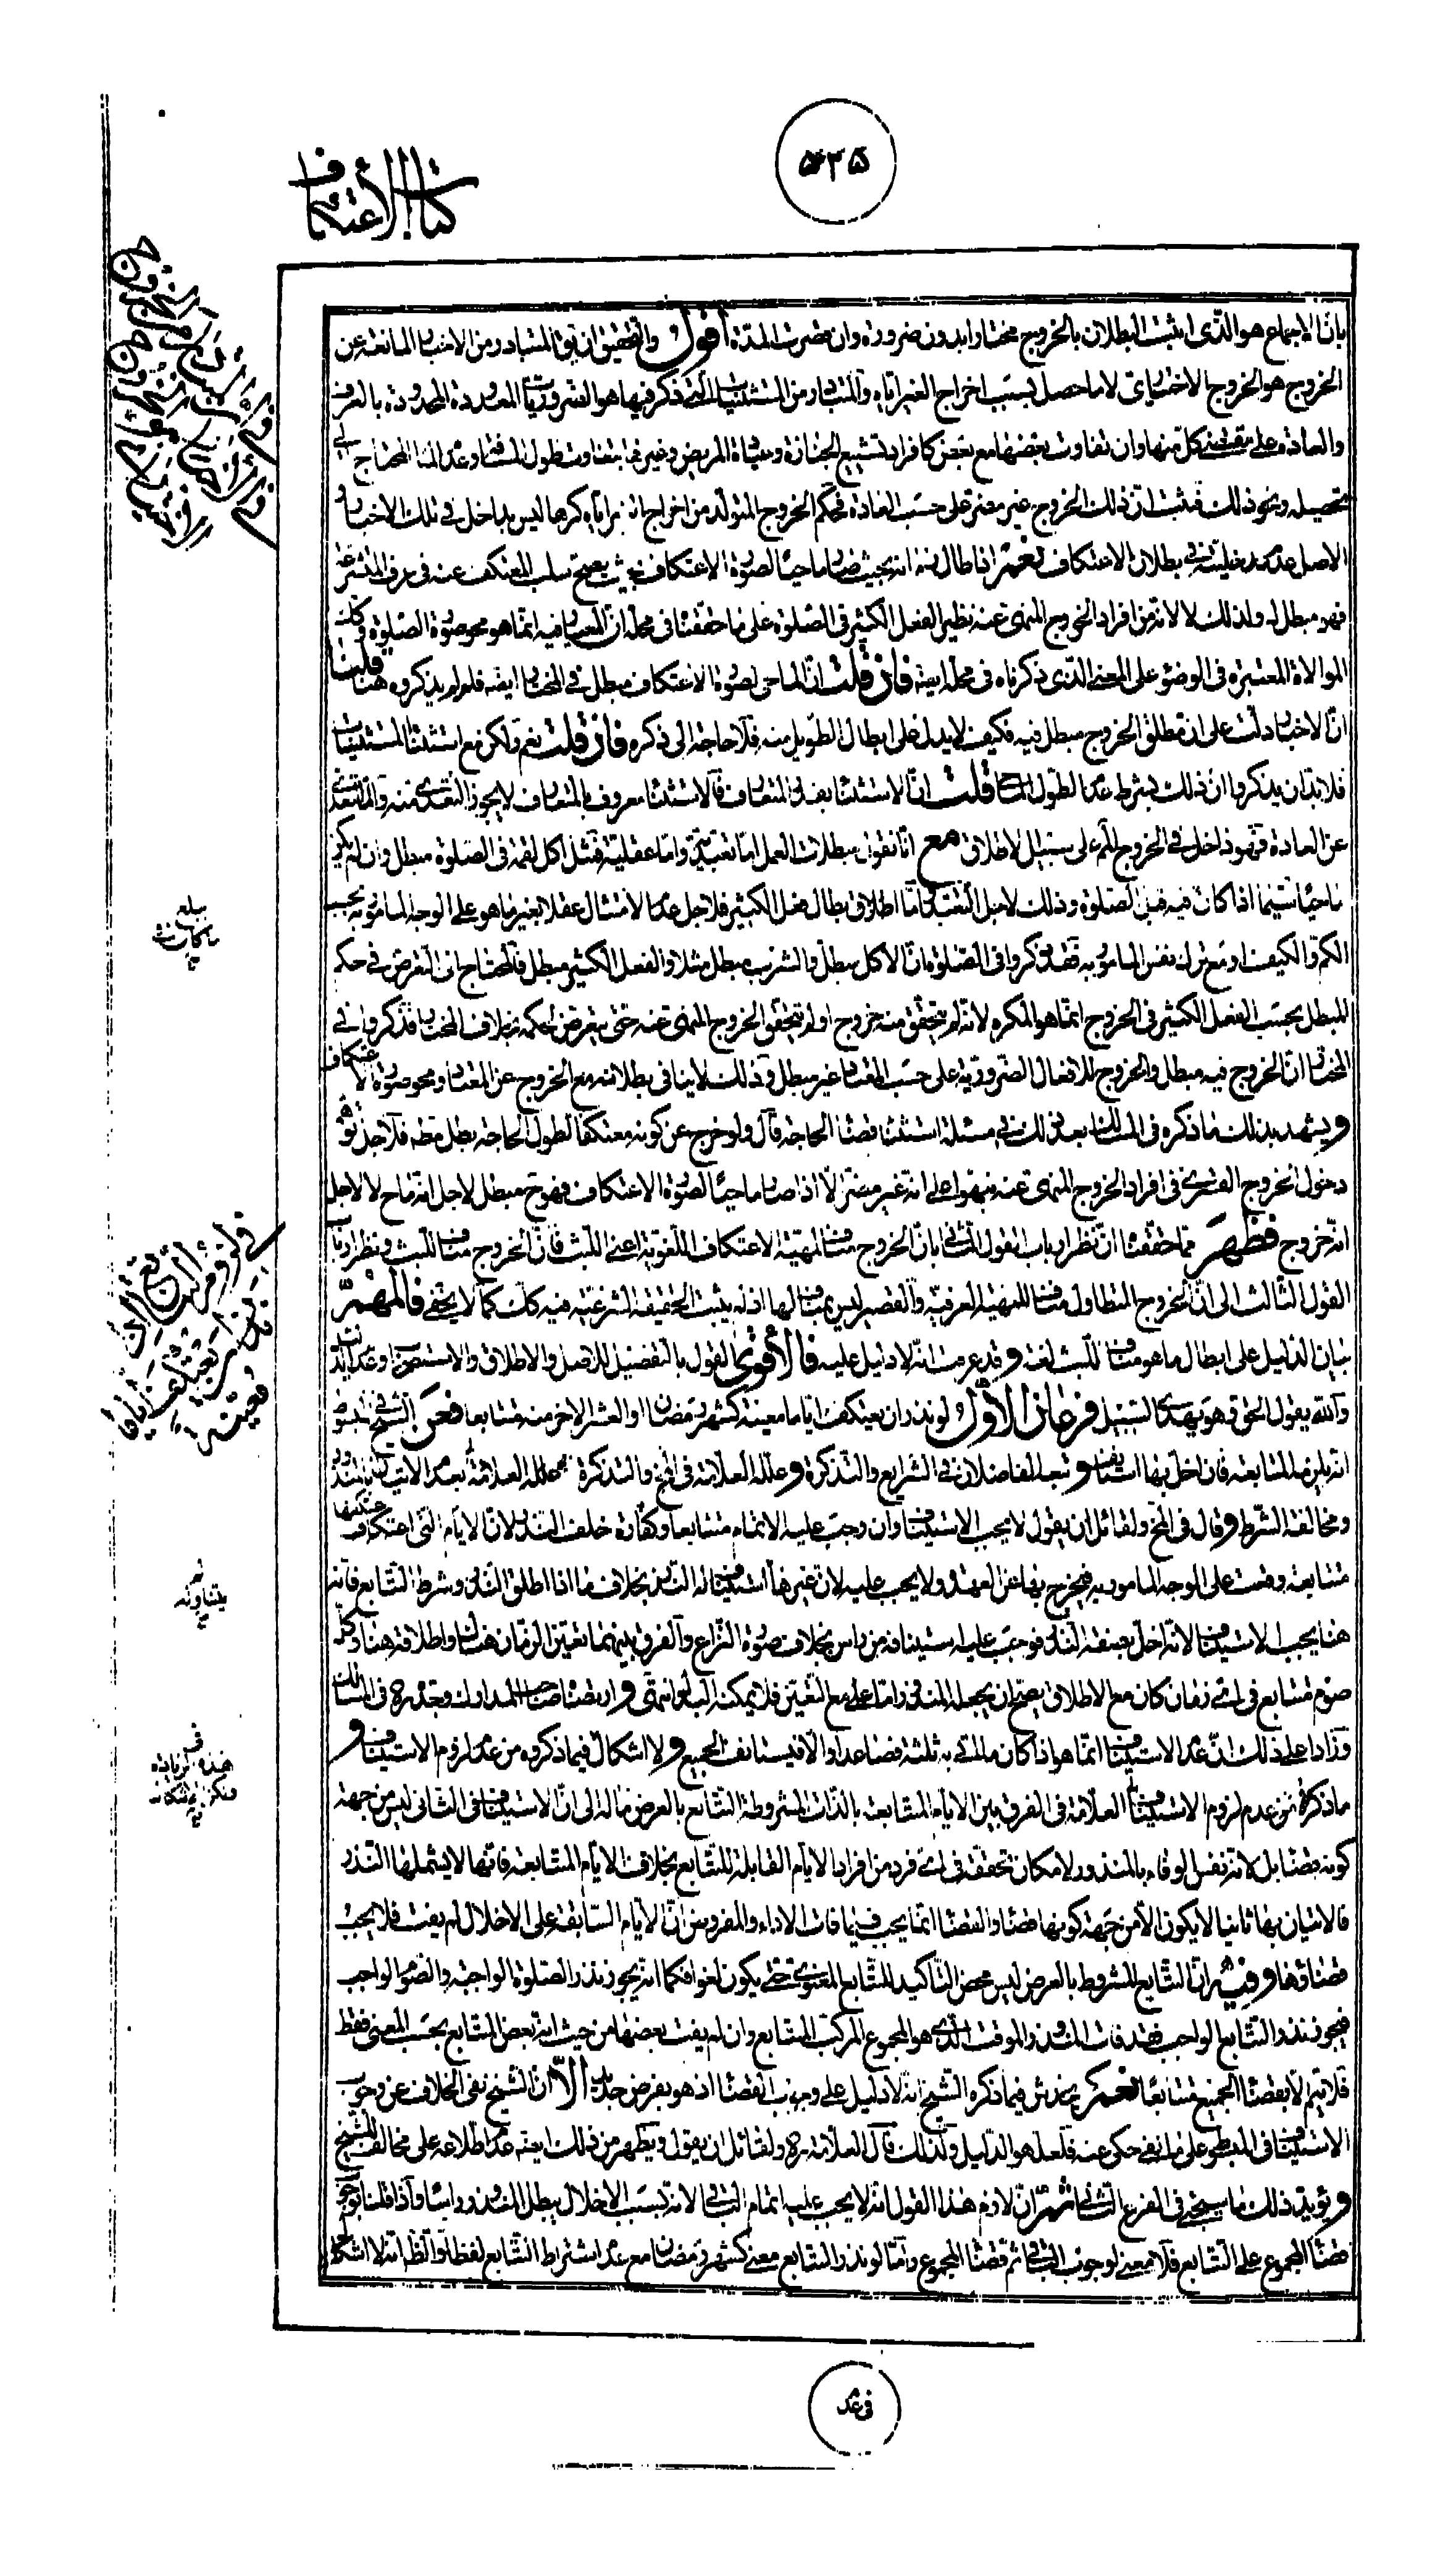 ۵۳۵
كتاب الاعتكاف
بانّ الاجماع هو الذى اثبت البطلان بالخروج مختارا بدون ضرورة وان قصرت المدة اقول والتحقيق ان يق المتبادر من الاخبار المانعة عن
الخروج هو الخروج الاختيارى لا ما حصل بسبب اخراج الغير اياه والمتبادر من المستثنيات التى ذكر فيها هو الضروريات المعدودة المحدودة بالعرف
والعادة على مقتضى كل منها وان تفاوت بعضها مع بعض كافراد تشييع الجنازة وعيادة المريض وغير ذلك
تحصيله ونحو ذلك فثبت ان ذلك الخروج غير مضر على حسب العادة فحكم الخروج المتولد من اخراج اياه كرها ليس بداخل فى تلك الاخبار و
الاصل عدم مدخليته فى بطلان الاعتكاف نعم اذا طال زمانه بحيث صار ماحيا لصورة الاعتكاف بحيث يصح سلب المعتكف عنه فى عرف المتشرعة
فهو مبطل له ولذلك لا لانه من افراد الخروج المنهى عنه نظير الفعل الكثير فى الصلوة على ما حققنا فى محله ان المعيار فيه انما هو محو صورة الصلوة وكك
الموالاة المعتبرة فى الوضوء على المعنى الذى ذكرناه فى محله ايضا فان قلت ان الماحى لصورة الاعتكاف مبطل فى المختار ايضا فلم لم يذكروه هنا قلت
ان الاخبار دلت على ان مطلق الخروج مبطل فيه فكيف لا يدل على ابطال الطويل منه فلا حاجة الى ذكره فان قلت نعم ولكن مع استثناء المستثنيات
فلا بد ان يذكروا ان ذلك بشرط عدم الطول الماحى قلت ان الاستثناء بقدر المتعارف فالاستثناء معروف بالمتعارف لا يجوز التعدى منه والمتعدى
عن العادة فهو داخل فى الخروج على سبيل الاطلاق مع انا نقول مبطلات العمل اما تعبدية واما عقلية فمثل اكل لقمة فى الصلوة مبطل وان لم يكن
ماحيا سيما اذا كان فيه قبل الصلوة وذلك لاجل التعبد واما اطلاق ابطال فعل الكثير فلاجل عدم الامتثال عقلا بغير ما هو على الوجه المامور به بحسب
الكم والكيف نفس المامور به فقد ذكروا فى الصلوة ان الاكل مبطل والشرب مبطل مثلا والفعل الكثير مبطل فالمحتاج الى التعرض فى حكم
المبطل بحسب الفعل الكثير فى الخروج انما هو المكره لانه لم يتحقق منه خروج او لم يتحقق الخروج المنهى عنه حتى يتعرض لحكمه بخلاف المختار فذكروا فى
المختار ان الخروج فيه مبطل والخروج للافعال الضرورية على حسب المعتاد غير مبطل وذلك لا ينافى بطلانه مع الخروج عن المعتاد ومحو صورة الاعتكاف
ويشهد بذلك ما ذكره فى المسالك بعد ذلك فى مسئلة استثناء قضاء الحاجة قال ولو خرج عن كونه معتكفا لطول الحاجة بطل مطلقا فلاجل توهم
دخول الخروج القسرى فى افراد الخروج المنهى عنه نبهوا على انه غير مضر الا اذا صار ماحيا لصورة الاعتكاف فهو ح مبطل لاجل انه ماح لا لاجل
انه خروج فظهر مما حققنا ان نظر ارباب القول الثانى بان الخروج مناف لمهية الاعتكاف اللغوية اعنى اللبث فان الخروج مناف للبث ونظر ارباب
القول الثالث الى ان الخروج المتطاول مناف للمهية العرفية والقصير ليس بمناف لها اذ لم يثبت الحقيقة الشرعية فيه كك كما لا يخفى فالمهم
بيان الدليل على ابطال ما هو مناف للبث لغة وقد عرفت انه لا دليل عليه فالاقوى القول بالتفصيل للاصل والاطلاق والاستصحاب وعدم
والله يقول الحق وهو يهدى السبيل فرعان الاول لو نذر ان يعتكف اياما معينة كشهر رمضان او العشر الاخر منه متتابعا فعن الشيخ فى المبسوط
انه يلزمه المتابعة فان اخل بها استانف وتبعه الفاضلان فى الشرايع والتذكرة وعلله العلامة فى المخ والتذكرة
ومخالفة الشرط وقال فى المخ ولقائل ان يقول لا يجب الاستيناف وان وجب عليه الاتمام متتابعا وكفارة خلف النذر لان الايام التى اعتكفها
متتابعة وقعت على الوجه المامور به فيخرج بها عن العهدة ولا يجب عليه لان غيرها استينافه التتابع بخلاف ما اذا اطلق النذر وشرط التتابع فانه
هنا يجب الاستيناف لانه اخل بصفة النذر فوجب عليه استينافه من راس بخلاف صورة النزاع والفرق بينهما تعيين الزمان هناك واطلاقه هنا وكل
صوم متتابع فى اى زمان كان مع الاطلاق يصح ان يجعله المنذور واما مع التعيين فلا يمكنه البدل انتهى وارتضاه صاحب المدارك وجده ره فى المسالك
وزاد على ذلك ان عدم الاستيناف انما هو اذا كان ما اتى به ثلثة فصاعدا والا فيستانف الجميع ولا اشكال فيما ذكروه من عدم لزوم الاستيناف و
ما ذكره من عدم لزوم الاستيناف العلامة فى الفرق بين الايام المتتابعة بالذات المشروطة التتابع بالعرض ماله الى ان الاستيناف فى الثانى ليس من جهة
كونه قضاء بل لانه نفس الوفاء بالمنذور لامكان تحققه فى اى فرد من افراد الايام القابلة للتتابع بخلاف الايام المتتابعة فانها لا يشملها النذر
فالاتيان بها ثانيا لا يكون الا من جهة كونها قضاء والقضاء انما يجب فيما فات الاداء والمفروض ان الايام السابقة على الاخلال لم يفت فلا يجب
قضاؤها وفيه ان التتابع المشروط بالعرض ليس محض التاكيد للتتابع المعنوى حتى يكون لغوا فكما انه يجوز نذر الصلوة الواجبة والصوم الواجب
فيجوز نذر التتابع الواجب فقد فات المنذور الموقت الذى هو المجموع المركب المتتابع وان لم يفت بعضها من حيث انه بعض المتتابع بحسب المعنى فقط
فلا يتم الا بقضاء الجميع متتابعا نعم يخدش فيما ذكره الشيخ انه لا دليل على وجوب القضاء اذ هو بفرض جديد الا ان الشيخ نفى الخلاف عن وجوب
الاستيناف فى المبسوط على ما حكى عنه فلعله هو الدليل ولذلك قال العلامة ره ولقائل ان يقول ويظهر من ذلك ايضا عدم اطلاعه على مخالف للشيخ
ويؤيد ذلك ما سيجئ فى الفرع الثانى ثم ان لازم هذا القول انه لا يجب عليه اتمام الباقى لانه بسبب الاخلال يبطل المنذور راسا واذا قلنا بوجوب
قضاء المجموع على التتابع فلا معنى لوجوب الباقى ثم قضاء المجموع واما لو نذر التتابع معنى كشهر رمضان مع عدم اشتراط التتابع لفظا فالظ انه لا اشكال
فى عدم
فى لزوم
لو نذر ان يعتكف اياما
معينة
يتناوله
هذه الزيادة